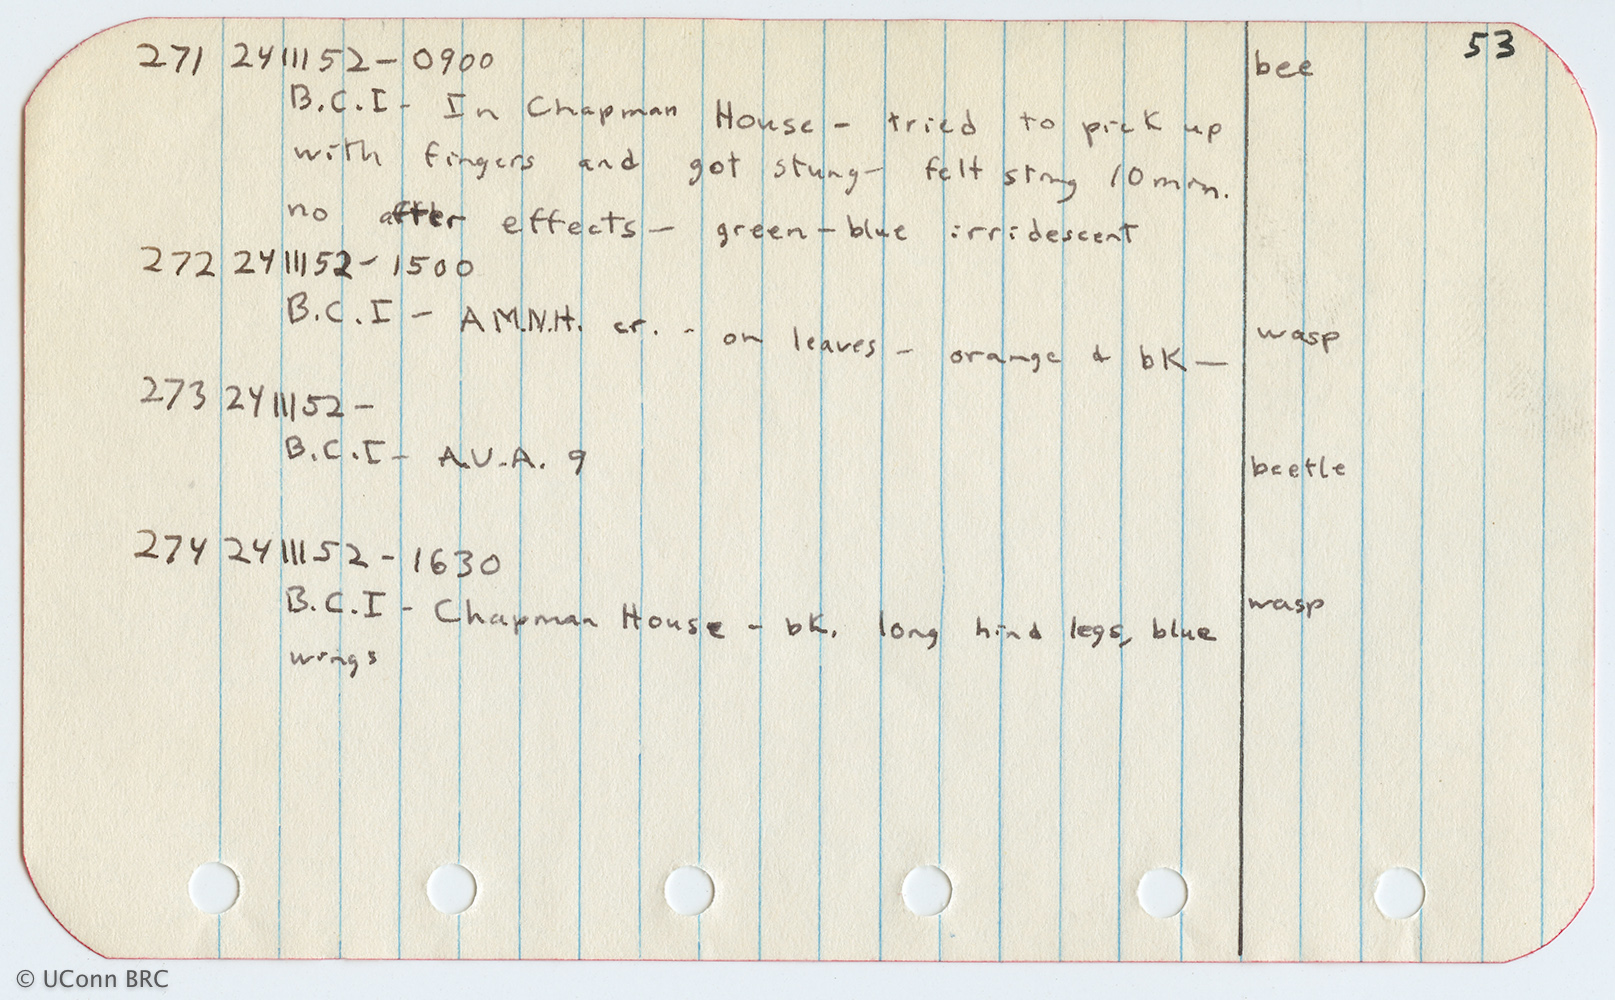 53
271 24III52 - 0900 bee
B.C.I - In Chapman House - tried to pick up
with fingers and got stung - felt sting 10 min.
no after effects - green-blue irridescent
272 24III52 - 1500
B.C.I - A.M.N.H. cr. - on leaves - orange & bk - wasp
273 24III52 -
B.C.I - A.V.A. 9 beetle
274 24III52 - 1630
B.C.I - Chapman House - bk. long hind legs, blue wasp
wings
© UConn BRC